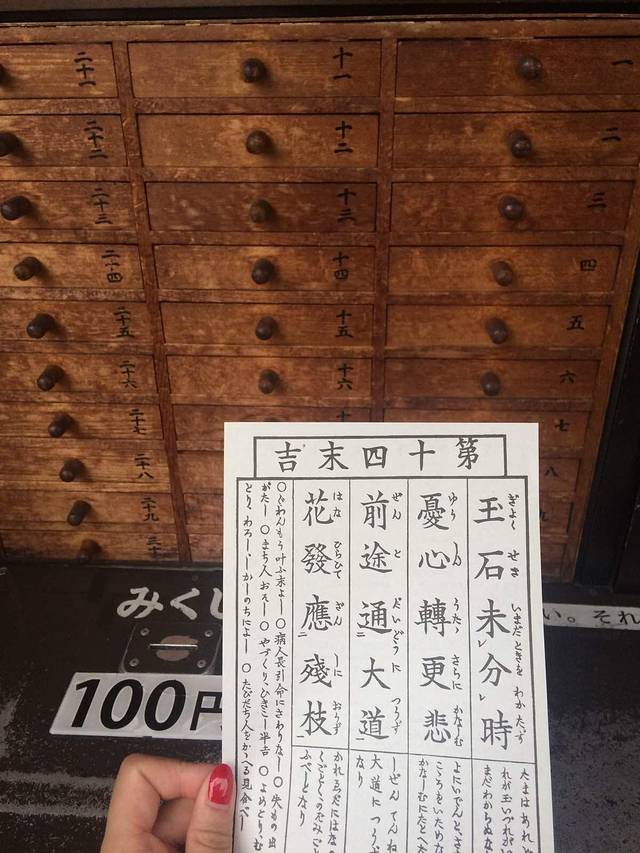 一
二
三
四
五
六
七
八
十一
十二
十三
十四
十五
十六
二十一
二十二
二十三
二十四
二十五
二十六
二十七
二十八
二十九
三十
みくじ
100円
い。それ
第十四末吉
玉石未分時
ぎよく せき いまだときを わかたず
憂心轉更悲
ゆうしん うたゝ さらに かなしむ
前途通大道
ぜんと だいどうに つうず
花發應殘枝
はな ひらひて ざんしに おうず
たまはあれ
れが玉いづれが
まだわからぬな
よにいでんと、さ
こゝろをいためな
かなしむにたとへた
しぜん てんね
大道に つうず
なり
かれゑだにはなの
くごとくのぞみごと
ふべしとなり
○ぐわんもう叶ふ末よし ○病人長引命にさわりなし ○失もの出
がたし ○まち人おそし ○やづくり、ひきこし半吉 ○よめとり、む
ことり、わろし、しかしのちによし ○たびだち人をかゝへる見合べし